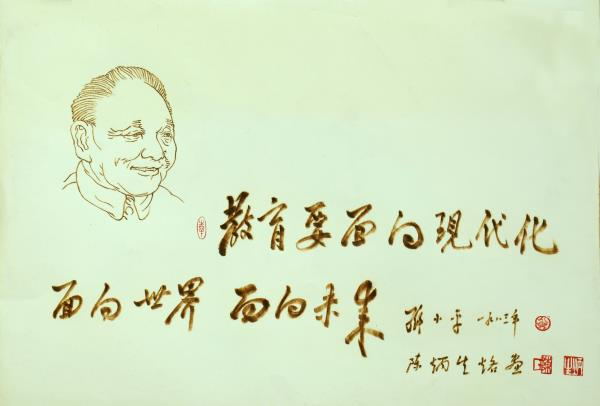 教育要面向現代化
面向世界 面向未来
邓小平 一九八三年
陈炳生烙畫